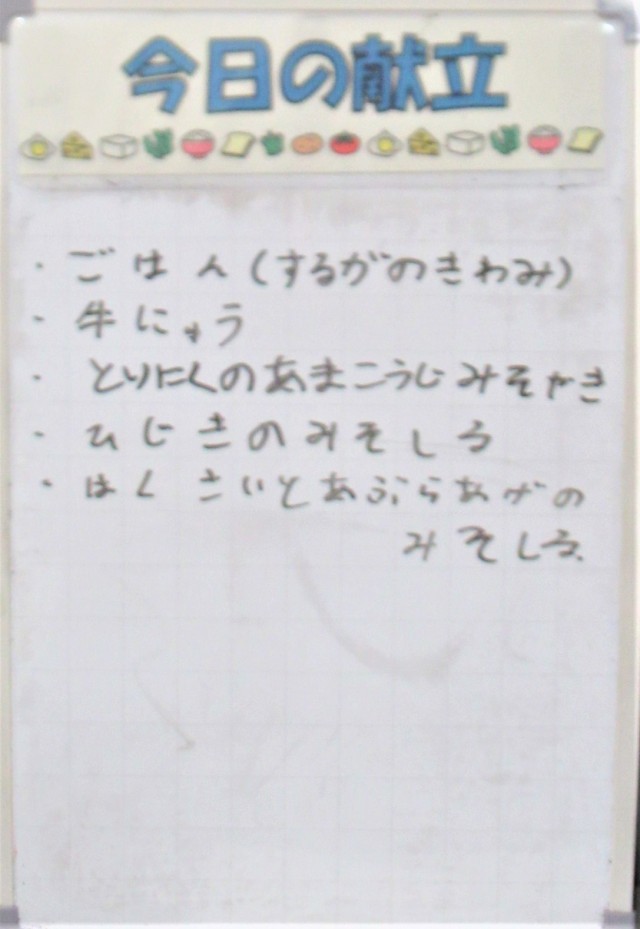 今日の献立
・ごはん(するがのきわみ)
・牛にゅう
・とりにくのあまこうじみそやき
・ひじきのみそしる
・はくさいとあぶらあげの
みそしる